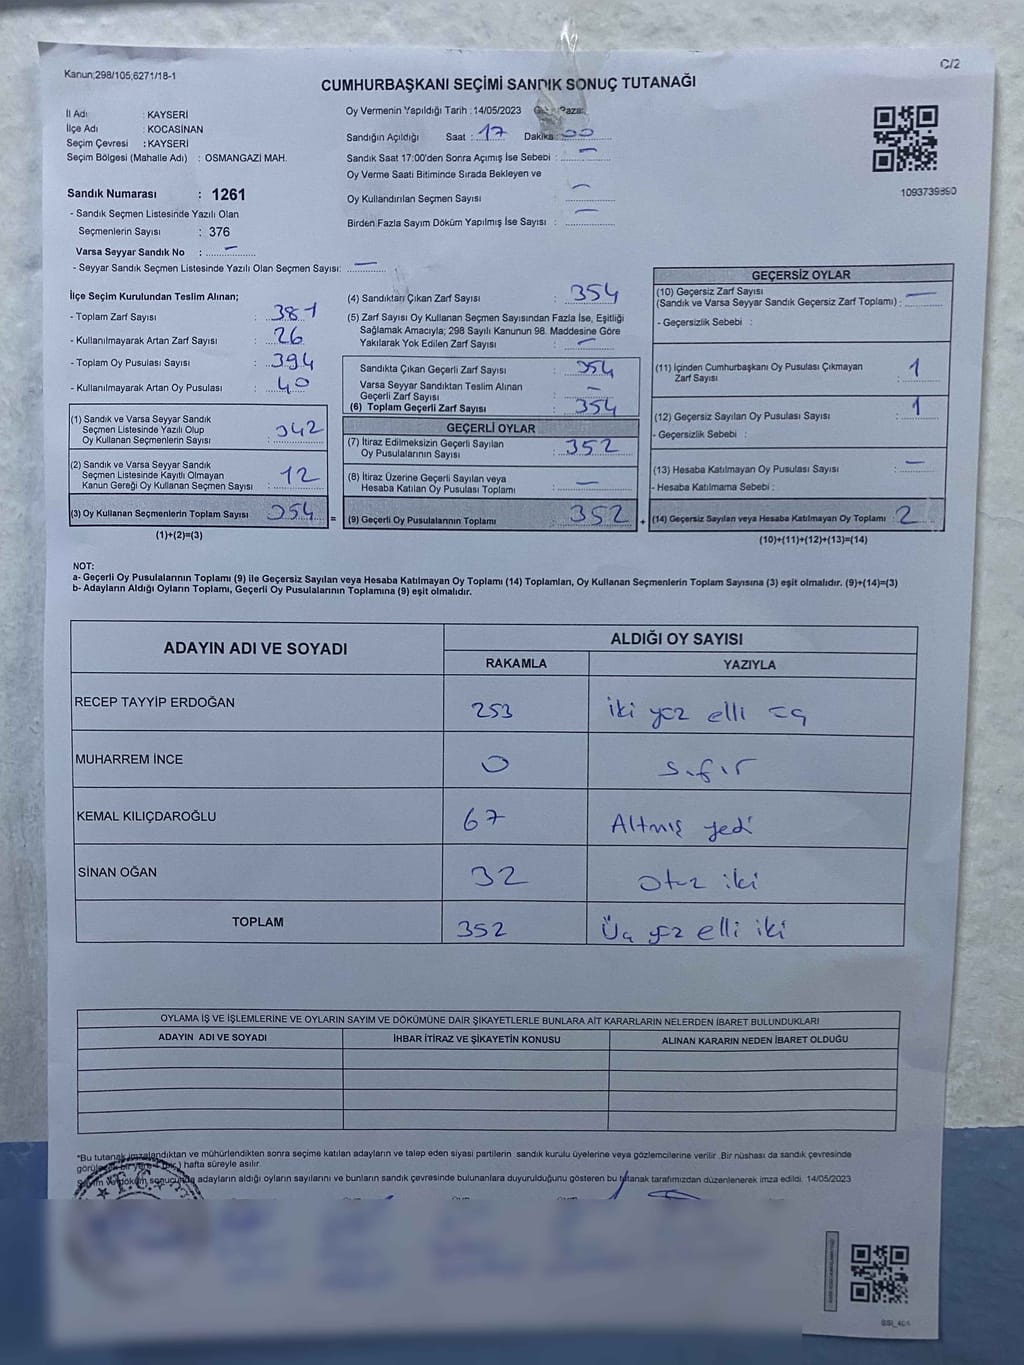 Kanun;298/105,6271/18-1
C/2
CUMHURBAŞKANI SEÇİMİ SANDIK SONUÇ TUTANAĞI
İl Adı : KAYSERİ
İlçe Adı : KOCASİNAN
Seçim Çevresi : KAYSERİ
Seçim Bölgesi (Mahalle Adı) : OSMANGAZİ MAH.
Sandık Numarası : 1261
- Sandık Seçmen Listesinde Yazılı Olan
Seçmenlerin Sayısı : 376
Varsa Seyyar Sandık No : —
- Seyyar Sandık Seçmen Listesinde Yazılı Olan Seçmen Sayısı: —
Oy Vermenin Yapıldığı Tarih : 14/05/2023
Sandığın Açıldığı Saat : 17 Dakika : 00
Sandık Saat 17:00'den Sonra Açımış İse Sebebi : —
Oy Verme Saati Bitiminde Sırada Bekleyen ve
Oy Kullandırılan Seçmen Sayısı —
Birden Fazla Sayım Döküm Yapılmış İse Sayısı : —
1093739890
İlçe Seçim Kurulundan Teslim Alınan;
- Toplam Zarf Sayısı : 381
- Kullanılmayarak Artan Zarf Sayısı : 26
- Toplam Oy Pusulası Sayısı : 394
- Kullanılmayarak Artan Oy Pusulası : 40
(1) Sandık ve Varsa Seyyar Sandık
Seçmen Listesinde Yazılı Olup
Oy Kullanan Seçmenlerin Sayısı : 342
(2) Sandık ve Varsa Seyyar Sandık
Seçmen Listesinde Kayıtlı Olmayan
Kanun Gereği Oy Kullanan Seçmen Sayısı : 12
(3) Oy Kullanan Seçmenlerin Toplam Sayısı : 354 =
(1)+(2)=(3)
(4) Sandıktan Çıkan Zarf Sayısı : 354
(5) Zarf Sayısı Oy Kullanan Seçmen Sayısından Fazla İse, Eşitliği
Sağlamak Amacıyla; 298 Sayılı Kanunun 98. Maddesine Göre
Yakılarak Yok Edilen Zarf Sayısı : —
Sandıkta Çıkan Geçerli Zarf Sayısı : 354
Varsa Seyyar Sandıktan Teslim Alınan
Geçerli Zarf Sayısı : —
(6) Toplam Geçerli Zarf Sayısı : 354
GEÇERLİ OYLAR
(7) İtiraz Edilmeksizin Geçerli Sayılan
Oy Pusulalarının Sayısı : 352
(8) İtiraz Üzerine Geçerli Sayılan veya
Hesaba Katılan Oy Pusulası Toplamı : —
(9) Geçerli Oy Pusulalarının Toplamı : 352 +
GEÇERSİZ OYLAR
(10) Geçersiz Zarf Sayısı
(Sandık ve Varsa Seyyar Sandık Geçersiz Zarf Toplamı) : —
- Geçersizlik Sebebi :
(11) İçinden Cumhurbaşkanı Oy Pusulası Çıkmayan
Zarf Sayısı : 1
(12) Geçersiz Sayılan Oy Pusulası Sayısı : 1
- Geçersizlik Sebebi :
(13) Hesaba Katılmayan Oy Pusulası Sayısı : —
- Hesaba Katılmama Sebebi :
(14) Geçersiz Sayılan veya Hesaba Katılmayan Oy Toplamı : 2
(10)+(11)+(12)+(13)=(14)
NOT:
a- Geçerli Oy Pusulalarının Toplamı (9) ile Geçersiz Sayılan veya Hesaba Katılmayan Oy Toplamı (14) Toplamları, Oy Kullanan Seçmenlerin Toplam Sayısına (3) eşit olmalıdır. (9)+(14)=(3)
b- Adayların Aldığı Oyların Toplamı, Geçerli Oy Pusulalarının Toplamına (9) eşit olmalıdır.
ADAYIN ADI VE SOYADI ALDIĞI OY SAYISI
RAKAMLA YAZIYLA
RECEP TAYYİP ERDOĞAN 253 iki yüz elli üç
MUHARREM İNCE 0 sıfır
KEMAL KILIÇDAROĞLU 67 Altmış yedi
SİNAN OĞAN 32 Otuz iki
TOPLAM 352 Üç yüz elli iki
OYLAMA İŞ VE İŞLEMLERİNE VE OYLARIN SAYIM VE DÖKÜMÜNE DAİR ŞİKAYETLERLE BUNLARA AİT KARARLARIN NELERDEN İBARET BULUNDUKLARI
ADAYIN ADI VE SOYADI İHBAR İTİRAZ VE ŞİKAYETİN KONUSU ALINAN KARARIN NEDEN İBARET OLDUĞU
*Bu tutanak imzalandıktan ve mühürlendikten sonra seçime katılan adayların ve talep eden siyasi partilerin sandık kurulu üyelerine veya gözlemcilerine verilir .Bir nüshası da sandık çevresinde
görülecek bir yere 1 (bir) hafta süreyle asılır.
Sayım ve döküm sonucunda adayların aldığı oyların sayılarını ve bunların sandık çevresinde bulunanlara duyurulduğunu gösteren bu tutanak tarafımızdan düzenlenerek imza edildi. 14/05/2023
T.C.